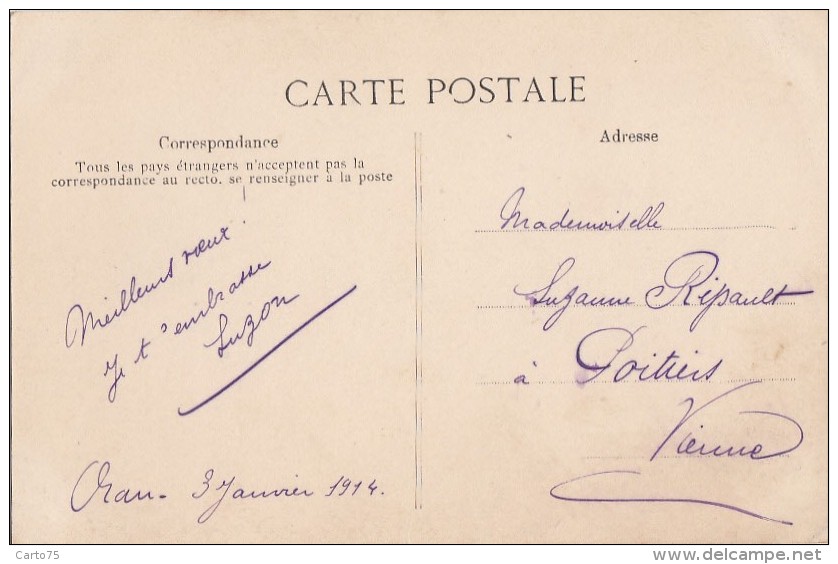 CARTE POSTALE
Correspondance
Tous les pays étrangers n'acceptent pas la
correspondance au recto. se renseigner à la poste
Meilleurs vœux !
Je t'embrasse
Suzon
Oran - 3 Janvier 1914.
Adresse
Mademoiselle
Suzanne Ripault
à Poitiers
Vienne
Carto75
www.delcampe.net